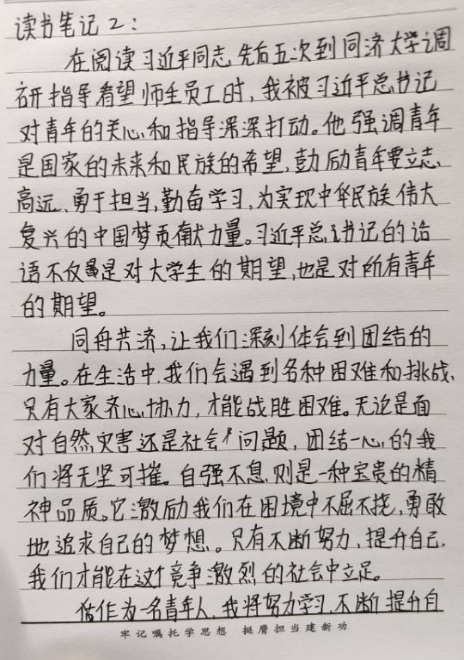 读书笔记2:
在阅读习近平同志先后五次到同济大学调
研指导看望师生员工时,我被习近平总书记
对青年的关心和指导深深打动。他强调青年
是国家的未来和民族的希望,鼓励青年要立志
高远、勇于担当,勤奋学习,为实现中华民族伟大
复兴的中国梦贡献力量。习近平总书记的话
语不仅是对大学生的期望,也是对所有青年
的期望。
同舟共济,让我们深刻体会到团结的
力量。在生活中,我们会遇到各种困难和挑战,
只有大家齐心协力,才能战胜困难。无论是面
对自然灾害还是社会问题,团结一心的我
们将无坚可摧。自强不息则是一种宝贵的精
神品质。它激励我们在困境中不屈不挠,勇敢
地追求自己的梦想。只有不断努力,提升自己,
我们才能在这个竞争激烈的社会中立足。
作为一名青年人,我将努力学习,不断提升自
牢记嘱托学思想 挺膺担当建新功